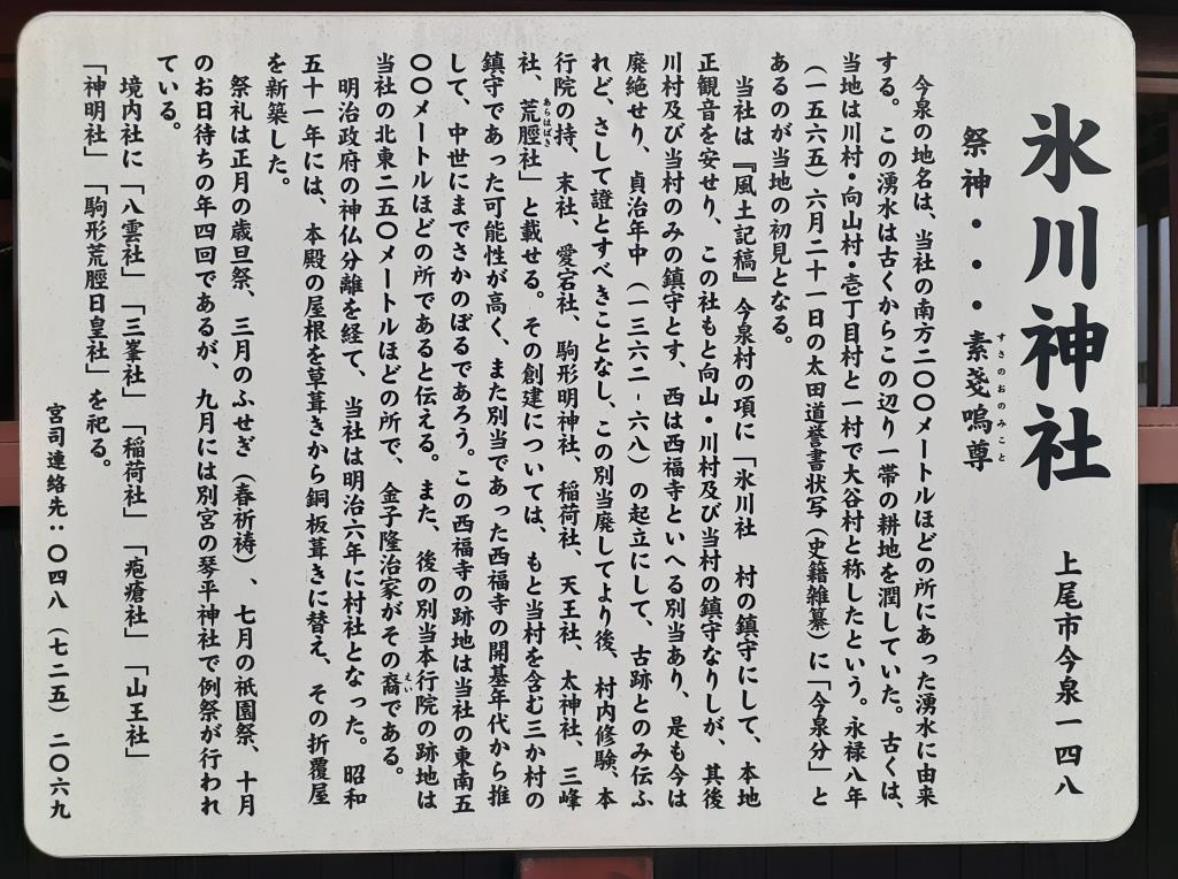 氷川神社
上尾市今泉一四八
祭神・・・素戔嗚尊
すさのおのみこと
今泉の地名は、当社の南方二〇〇メートルほどの所にあった湧水に由来
する。この湧水は古くからこの辺り一帯の耕地を潤していた。古くは、
当地は川村・向山村・壱丁目村と一村で大谷村と称したという。永禄八年
（一五六五）六月二十一日の太田道誉書状写（史籍雑纂）に「今泉分」と
あるのが当地の初見となる。
当社は『風土記稿』今泉村の項に「氷川社　村の鎮守にして、本地
正観音を安せり、この社もと向山・川村及び当村の鎮守なりしが、其後
川村及び当村のみの鎮守とす、西は西福寺といへる別当あり、是も今は
廃絶せり、貞治年中（一三六二-六八）の起立にして、古跡とのみ伝ふ
れど、さして證とすべきことなし、この別当廃してより後、村内修験、本
行院の持、末社、愛宕社、駒形明神社、稲荷社、天王社、太神社、三峰
社、荒脛社」と載せる。その創建については、もと当村を含む三か村の
あらはばき
鎮守であった可能性が高く、また別当であった西福寺の開基年代から推
して、中世にまでさかのぼるであろう。この西福寺の跡地は当社の東南五
〇〇メートルほどの所であると伝える。また、後の別当本行院の跡地は
当社の北東二五〇メートルほどの所で、金子隆治家がその裔である。
えい
明治政府の神仏分離を経て、当社は明治六年に村社となった。昭和
五十一年には、本殿の屋根を草葺きから銅板葺きに替え、その折覆屋
を新築した。
祭礼は正月の歳旦祭、三月のふせぎ（春祈祷）、七月の祇園祭、十月
のお日待ちの年四回であるが、九月には別宮の琴平神社で例祭が行われ
ている。
境内社に「八雲社」「三峯社」「稲荷社」「疱瘡社」「山王社」
「神明社」「駒形荒脛日皇社」を祀る。
宮司連絡先：〇四八（七二五）二〇六九